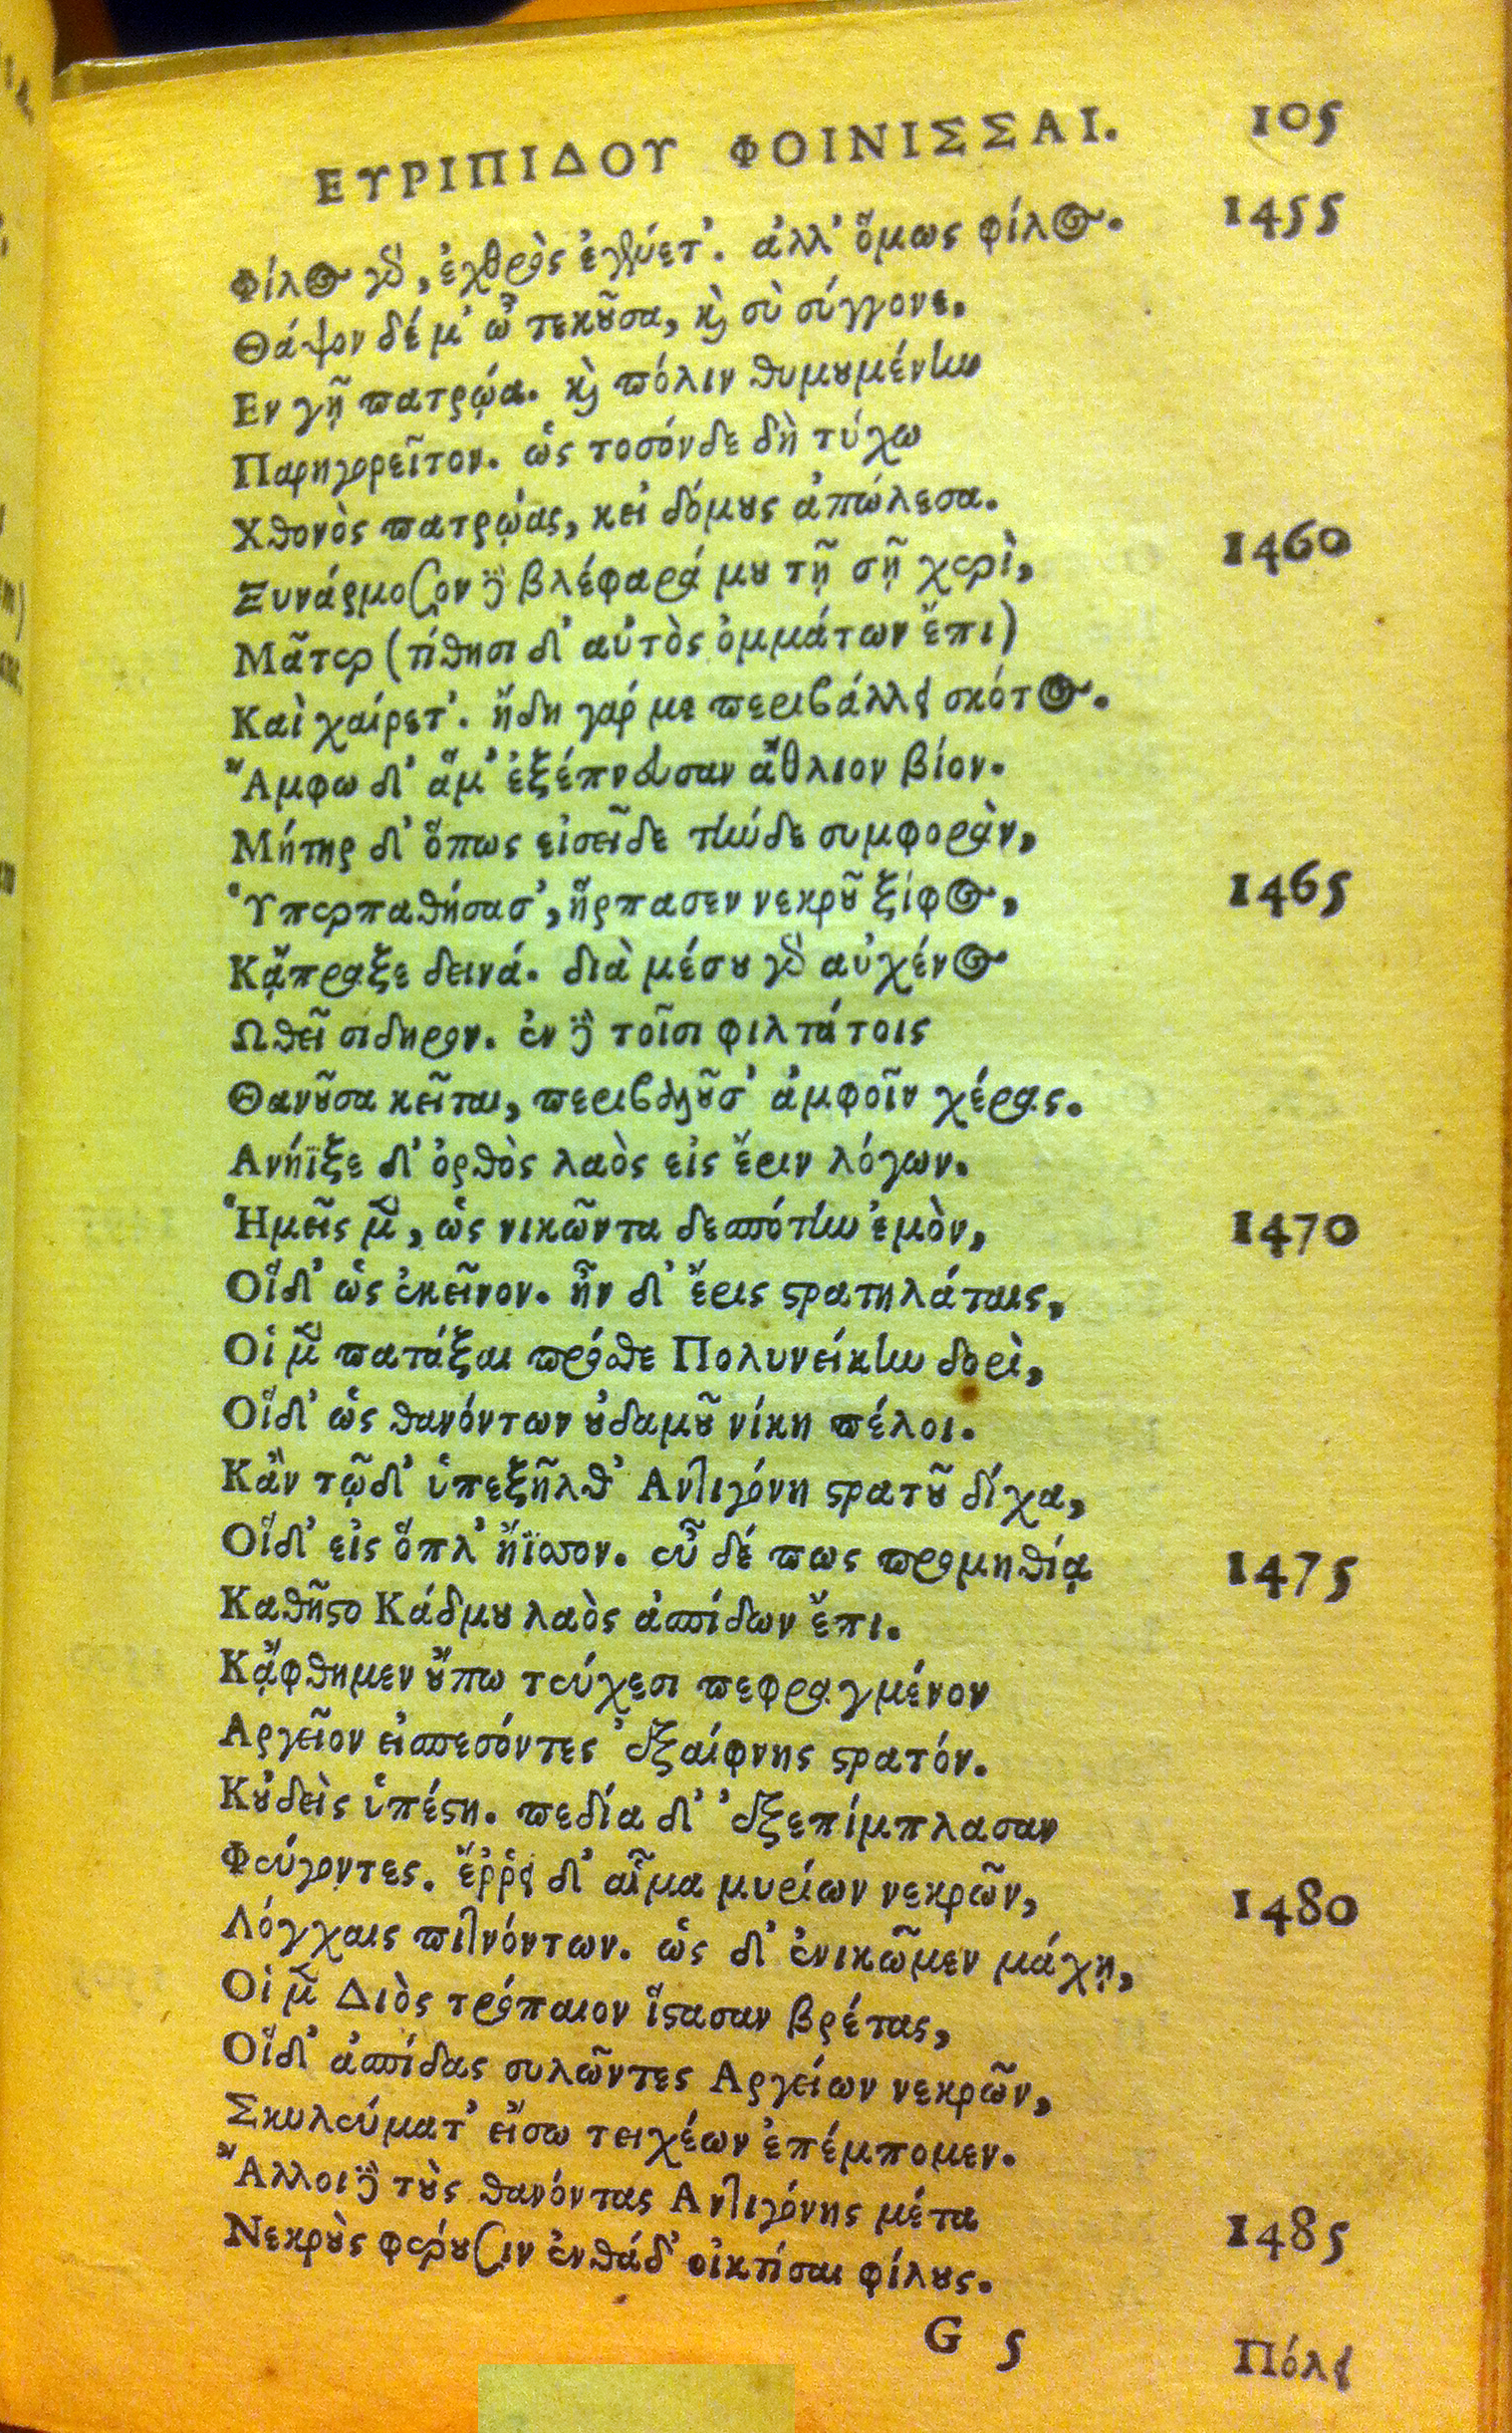 ΕΥΡΙΠΙΔΟΥ ΦΟΙΝΙΣΣΑΙ. 105
Φίλος γδ, ἐχθρὸς ἐγένετ'. ἀλλ' ὅμως φίλος. 1455
Θάψον δέ μ' ὦ τεκȣ͂σα, κὶ σὺ σύγγονε,
Εν γῇ πατρῴα. κὶ πόλιν θυμȣμένην
Παρηγορεῖτον. ὡς τοσόνδε δὴ τύχω
Χθονὸς πατρῴας, κεἰ δόμȣς ἀπώλεσα.
Ξυνάρμοζον δὲ βλέφαρά μȣ τῇ σῇ χερὶ, 1460
Μᾶτερ (τίθησι δ' αὐτὸς ὀμμάτων ἔπι)
Καὶ χαίρετ'. ἤδη γάρ με περιβάλλει σκότος.
Ἄμφω δ' ἅμ' ἐξέπνευσαν ἄθλιον βίον.
Μήτηρ δ' ὅπως εἰσεῖδε τήνδε συμφορὰν,
Ὑπερπαθήσασ', ἥρπασεν νεκρȣ͂ ξίφος, 1465
Κᾄπραξε δεινά. διὰ μέσȣ γδ αὐχένος
Ωθεῖ σιδηρον. ἐν δὲ τοῖσι φιλτάτοις
Θανȣ͂σα κεῖται, περιβαλȣ͂σ' ἀμφοῖν χέρας.
Ανήϊξε δ' ὀρθὸς λαὸς εἰς ἔριν λόγων.
Ἡμεῖς μὲν, ὡς νικῶντα δεσπότην ἐμὸν, 1470
Οἵδ' ὡς ἐκεῖνον. ἦν δ' ἔρις ϛρατηλάταις,
Οἱ μὲν πατάξαι πρόσθε Πολυνείκην δορὶ,
Οἵδ' ὡς θανόντων ȣ̓δαμȣ͂ νίκη πέλοι.
Κἂν τῷδ' ὑπεξῆλθ' Αντιγόνη ϛρατȣ͂ δίχα,
Οἵδ' εἰς ὅπλ' ἤϊσσον. εὖ δέ πως προμηθίᾳ 1475
Καθῆϛο Κάδμȣ λαὸς ἀσπίδων ἔπι.
Κᾄφθημεν ȣ̓́πω τεύχεσι πεφραγμένον
Αργεῖον εἰσπεσόντες ἐξαίφνης ϛρατόν.
Κȣ̓δεὶς ὑπέϛη. πεδία δ' ἐξεπίμπλασαν
Φεύγοντες. ἔῤῥει δ' αἷμα μυρίων νεκρῶν, 1480
Λόγχαις πιτνόντων. ὡς δ' ἐνικῶμεν μάχῃ,
Οἱ μὲν Διὸς τρόπαιον ἵϛασαν βρέτας,
Οἵδ' ἀσπίδας συλῶντες Αργείων νεκρῶν,
Σκυλεύματ' εἴσω τειχέων ἐπέμπομεν.
Ἄλλοι δὲ τȣ̀ς θανόντας Αντιγόνης μέτα 1485
Νεκρȣ̀ς φέρȣσιν ἐνθάδ' οἰκτίσαι φίλȣς.
G 5 Πόλει